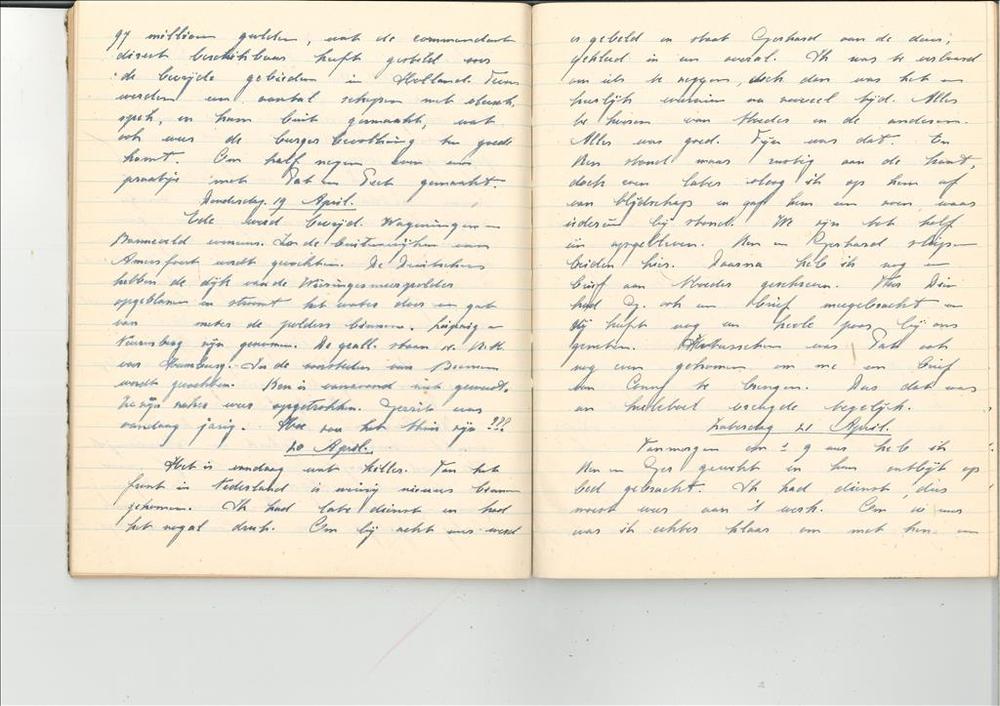 97 millioen gulden, wat de commandant
direct beschikbaar heeft gesteld voor
de bevrijde gebieden in Holland. Tevens
werden een aantal schepen met
spek, en ham buit gemaakt, wat
ook weer de burger bevolking ten goede
komt. Om half negen even een
praatje met Pat en gemaakt.
Donderdag 19 April.
Ede werd bevrijd. Wageningen en
Barneveld eveneens. In de buitenwijken van
Amersfoort wordt gevochten. De Duitschers
hebben de dijk van de Wieringermeerpolder
opgeblazen en stroomt het water door een gat
van meter de polders binnen. Leipzig en
Neurenberg zijn genomen. De geall. staan 10 K.M.
van Hamburg. In de voorsteden van Bremen
wordt gevochten. Ben is vanavond niet geweest.
Ze zijn weer opgetrokken. Gerrits was
vandaag jarig. Hoe zou het thuis zijn ???
20 April.
Het is vandaag wat killer. Van het
front in Nederland is weinig nieuws binnen
gekomen. Ik had late dienst en had
het nogal druk. Om bij acht uur werd
er gebeld en staat Gerhard aan de deur,
gekleed in een overal. Ik was te verbaasd
om iets te zeggen, doch dan was het een
heerlijk weerzien na zooveel tijd. Alles
be hoeven van Moeder en de anderen.
Alles was goed. Fijn was dat. En
Ben stond maar rustig aan de kant,
doch even later vloog ik op hem af
van blijdschap en gaf hem een zoen, waar
iedereen bij stond. We zijn tot half
één opgebleven. Ben en Gerhard slapen
beiden hier. Daarna heb ik nog een
brief aan Moeder geschreven. Voor Din
had G. ook een brief meegebracht en
zij heeft nog een heele poos bij ons
gezeten. Ondertusschen was Pat ook
nog even gekomen om me een brief
van Conny te brengen. Dus dat was
een heeleboel vreugde tegelijk.
Zaterdag 21 April.
Vanmorgen om ± 9 uur heb ik
Ben en Ger gewekt en hun ontbijt op
bed gebracht. Ik had dienst, dus
moest weer aan 't werk. Om uur
was ik echter klaar om met hen een